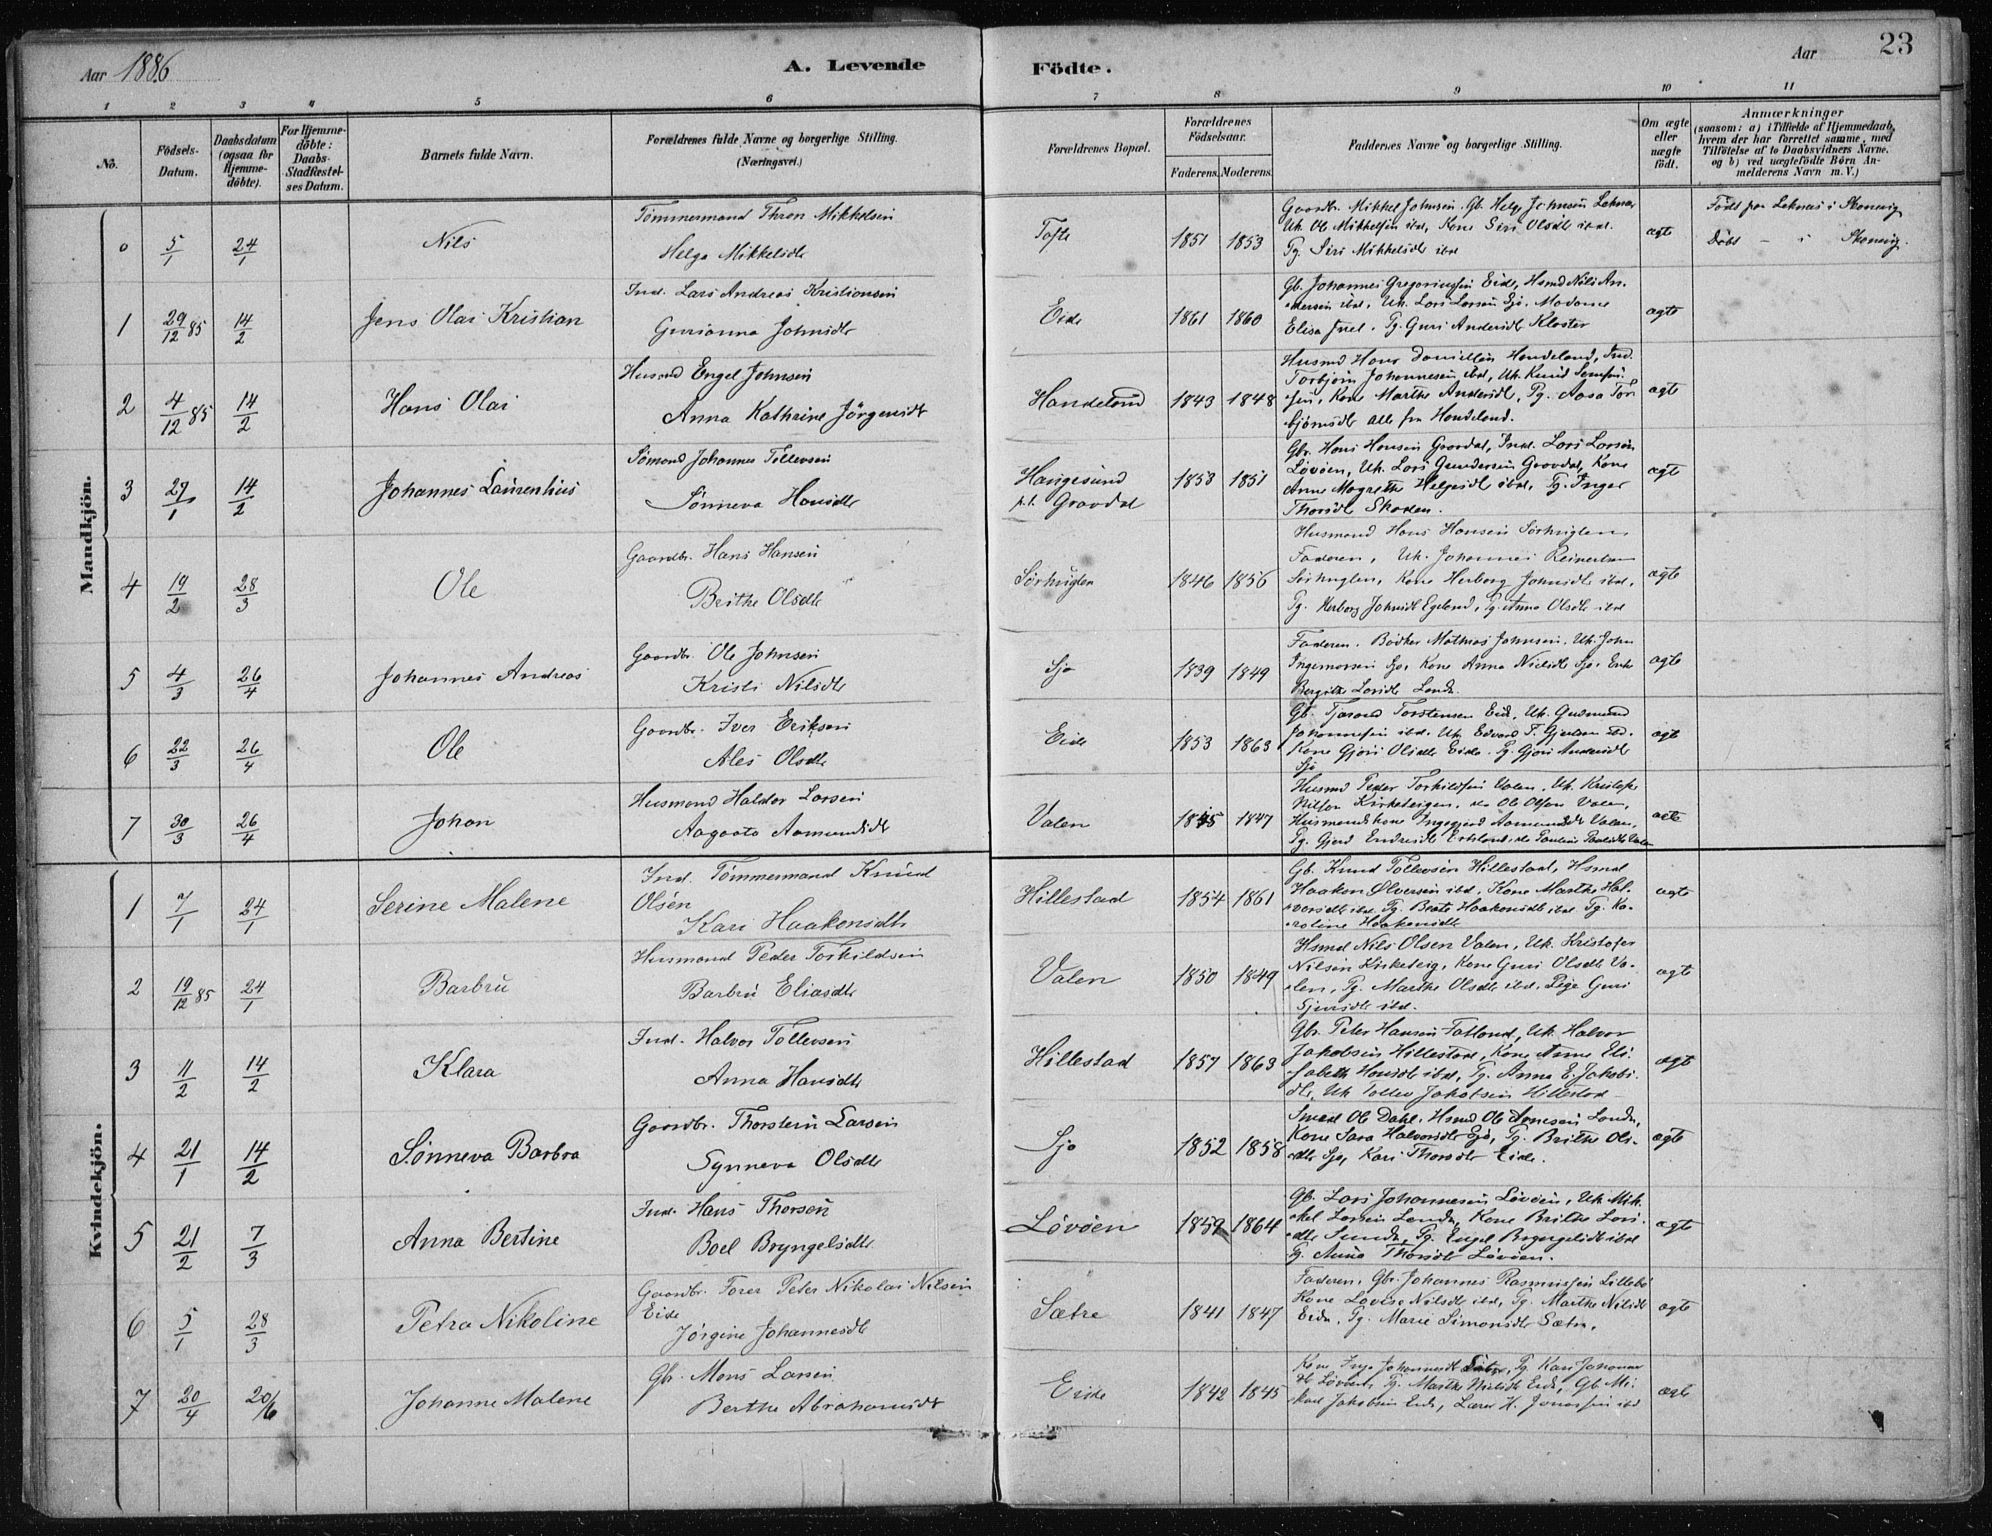 Aar 1886
A. Levende
Födte.
Aar
23
1 2 3 4 5 6 7 8 9 10 11
No.
Födsels-
Datum.
Daabsdatum
(ogsaa for
Hjemme-
döbte).
For Hjemme-
döbte:
Daabs-
Stadfæstel-
ses Datum.
Barnets fulde Navn.
Forældrenes fulde Navne og borgerlige Stilling.
(Næringsvei.)
Forældrenes Bopæl.
Forældrenes
Födselsaar.
Faderens. Moderens.
Faddernes Navne og borgerlige Stilling.
Om ægte
eller
uægte
födt.
Anmærkninger
(saasom: a) i Tilfælde af Hjemmedaab,
hvem der har forrettet samme, med
Tilföielse af to Daabsvidners Navne.
og b) ved uægtefödte Börn An-
melderens Navn m. V.)
Mandkjön.
0 5/1 24/1 Nils
Tømmermand Thron Mikkelsen
Helga Mikkelsdtr
Tofte 1851 1853
Gaardbr. Mikkel Johnsen. Gb. Helge Johnsen Leknes
Uk. Ole Mikkelsen ibd, Kone Siri Olsdtr ibd.
Pg. Siri Mikkelsdtr ibd
ægte
Født paa Leknes i Skonevig
Døbt — i Skonevig.
1 29/12 85 14/2 Jens Olai Kristian
Ind. Lars Andreas Kristiansen
Gurianna Johnsdtr
Eide 1861 1860
Gb. Johannes Gregoriussen Eide, Hsmd Nils An-
dersen ibd, Uk. Lars Larsen Sjo. Madame
Elisa Juel. Pg. Guri Andersdtr Kloster
ægte
2 4/12 85 14/2 Hans Olai
Husmd Engel Johnsen
Anna Kathrine Jörgensdt
Handeland 1843 1848
Husmd Hans Danielsen Handeland, Ind.
Torbjörn Johannesen ibd, Uk. Knud
sen, Kone Marthe Andersdt, Pg. Aasa Tor-
bjørnsdt alle fra Handeland.
ægte
3 27/1 14/2 Johannes Laurentius
Sømand Johannes Tollevsen
Sønneva Hansdtr
Haugesund
p.t. Gravdal 1858 1851
Gbr. Hans Hansen Gravdal, Ind. Lars Larsen
Løvöen, Uk. Lars Gundersen Gravdal, Kone
Anne Magrethe Helgesdt ibd, Pg. Inger
Thorsdt Skaden.
ægte
4 19/2 28/3 Ole
Gaardbr. Hans Hansen
Brithe Olsdtr
Sørhuglen 1846 1856
Husmand Hans Hansen Sørhuglen,
Faderen, Uk. Johannes Reinertsen
Sørhuglen, Kone Herborg Johnsdt ibd,
Pg. Herborg Johnsdt Egeland, Pg. Anna Olsdtr ibd
ægte
5 4/3 26/4 Johannes Andreas
Gaardbr. Ole Johnsen
Kristi Nilsdtr
Sjo 1839 1849
Faderen. Bødker Mathias Johnsen, Uk. John
Ingemarsen Sjo, Kone Anna Nielsdtr Sjo, Enke
Bergithe Larsdt Landa.
ægte
6 22/3 26/4 Ole
Gaardbr. Iver Eriksen
Ales Olsdtr
Eide 1853 1863
Gb. Tjerand Torstensen Eide, Uk. Gudmund
Johannesen ibd. Uk Edvard T. ibd.
Kone Gjöri Olsdtr Eide. Pg. Gjöri Andersdtr
Sjo
ægte
7 30/3 26/4 Johan
Husmand Haldor Larsen
Aagaata Aamundsdt
Valen 1845 1847
Husmd Peder Torkildsen Valen, Uk. Kristofer
Nilsen Kirkebergen, do Ole Olsen Valen,
Husmandskone Ingegjerd Aamundsdt Valen,
Pg. Gjerd Endresdt
ægte
Kvindekjön.
1 7/1 24/1 Serine Malene
Ind. Tømmermand Knud
Olsen
Kari Haakonsdtr
Hillestad 1854 1861
Gb. Knud Tollevsen Hillestad, Hsmd
Haaken Ølversen ibd, Kone Marthe Hal-
vorsdt ibd. Pg. Beate Haakonsdt ibd Pg. Ka-
roline Haakonsdt
ægte
2 19/12 85 24/1 Barbru
Husmand Peder Torkildsen
Barbru Eliasdtr
Valen 1850 1849
Hsmd Nils Olsen Valen, Uk. Kristofer
Nilsen Kirkeberg, Kone Guri Olsdt Va-
len, Pg. Marthe Olsdtr ibd. Pige Guri
Sjursdt ibd.
ægte
3 11/2 14/2 Klara
Ind. Halvor Tollevsen
Anna Hansdtr
Hillestad 1857 1863
Gbr. Peter Hansen Tatland, Uk. Halvor
Jakobsen Hillestad, Kone Anne Eli-
sabeth Hansdt ibd, Pg. Anna E. Jakobs-
dtr, Uk Tollev Jakobsen Hillestad
ægte
4 21/1 14/2 Sønneva Barbra
Gaardbr. Thorstein Larsen
Synneva Olsdtr
Sjo 1852 1858
Smed Ole Dahl, Hsmd Ole Arnesen Landa,
Kone Sara Halvorsdtr Sjo, Pg. Brithe Ols-
dtr Sjo, Kari Thorsdtr Eide.
ægte
5 21/2 7/3 Anna Bertine
Ind. Hans Thorsen
Boel Bryngelsdtr
Løvöen 1859 1864
Gb. Lars Johannesen Løvöen, Uk. Mik-
kel Larsen Landa, Kone Brithe Lars-
dtr Sunde, Pg. Engel Bryngelsdt ibd
Pg. Anna Thorsdtr Løvöen.
ægte
6 5/1 28/3 Petra Nikoline
Gaardbr. Forer Peter Nikolai Nilsen
Eide
Jørgine Johannesdtr
Sætre 1841 1847
Faderen, Gbr. Johannes Rasmussen Lillebø
Kone Lovise Nilsdtr ibd, Pg. Marthe Nilsdt
Eide, Pg. Marie Simonsdtr Sætre.
ægte
7 20/4 20/6 Johanne Malene
Gb. Mons Larsen
Berthe Abrahamsdt
Eide 1842 1845
Kone Inga Johannesdt Sætre, Pg. Kari Johannes-
dt Løvöen, Pg. Marthe Nielsdt Eide, Gb. Mi-
kael Jakobsen Eide, Lærer H. Jonassen ibd
ægte